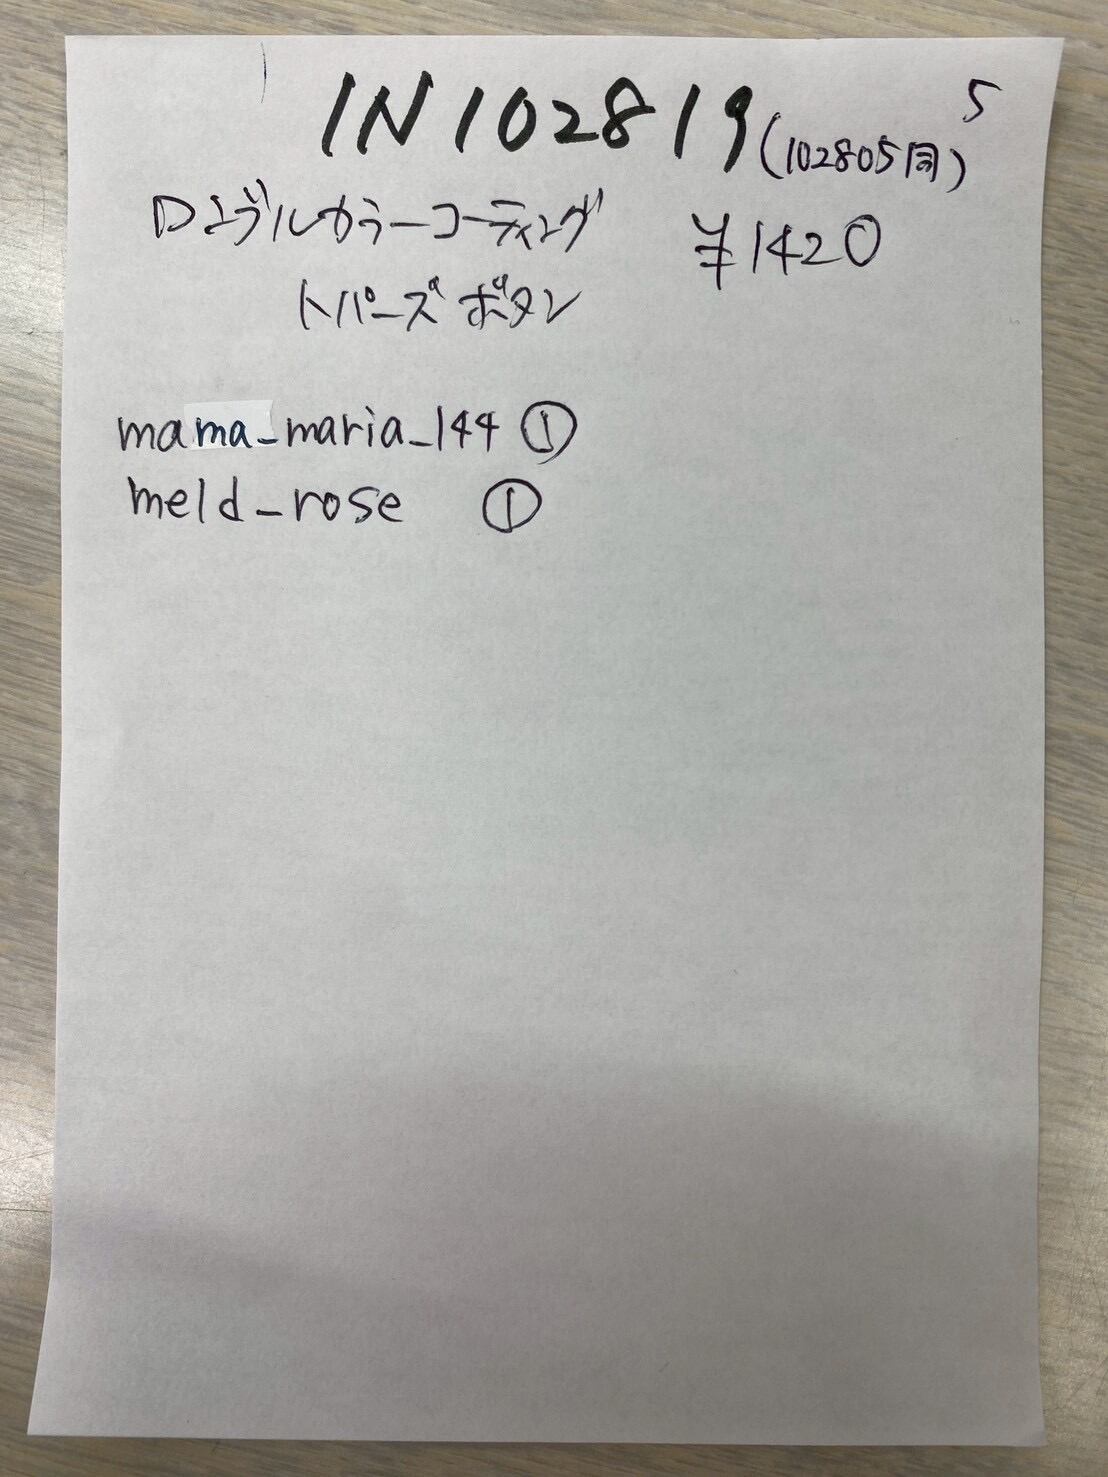 5
IN102819(102805同)
ロンデルカラーコーティング ¥1420
トパーズ ボタン
mama_maria_144 ①
meld_rose ①